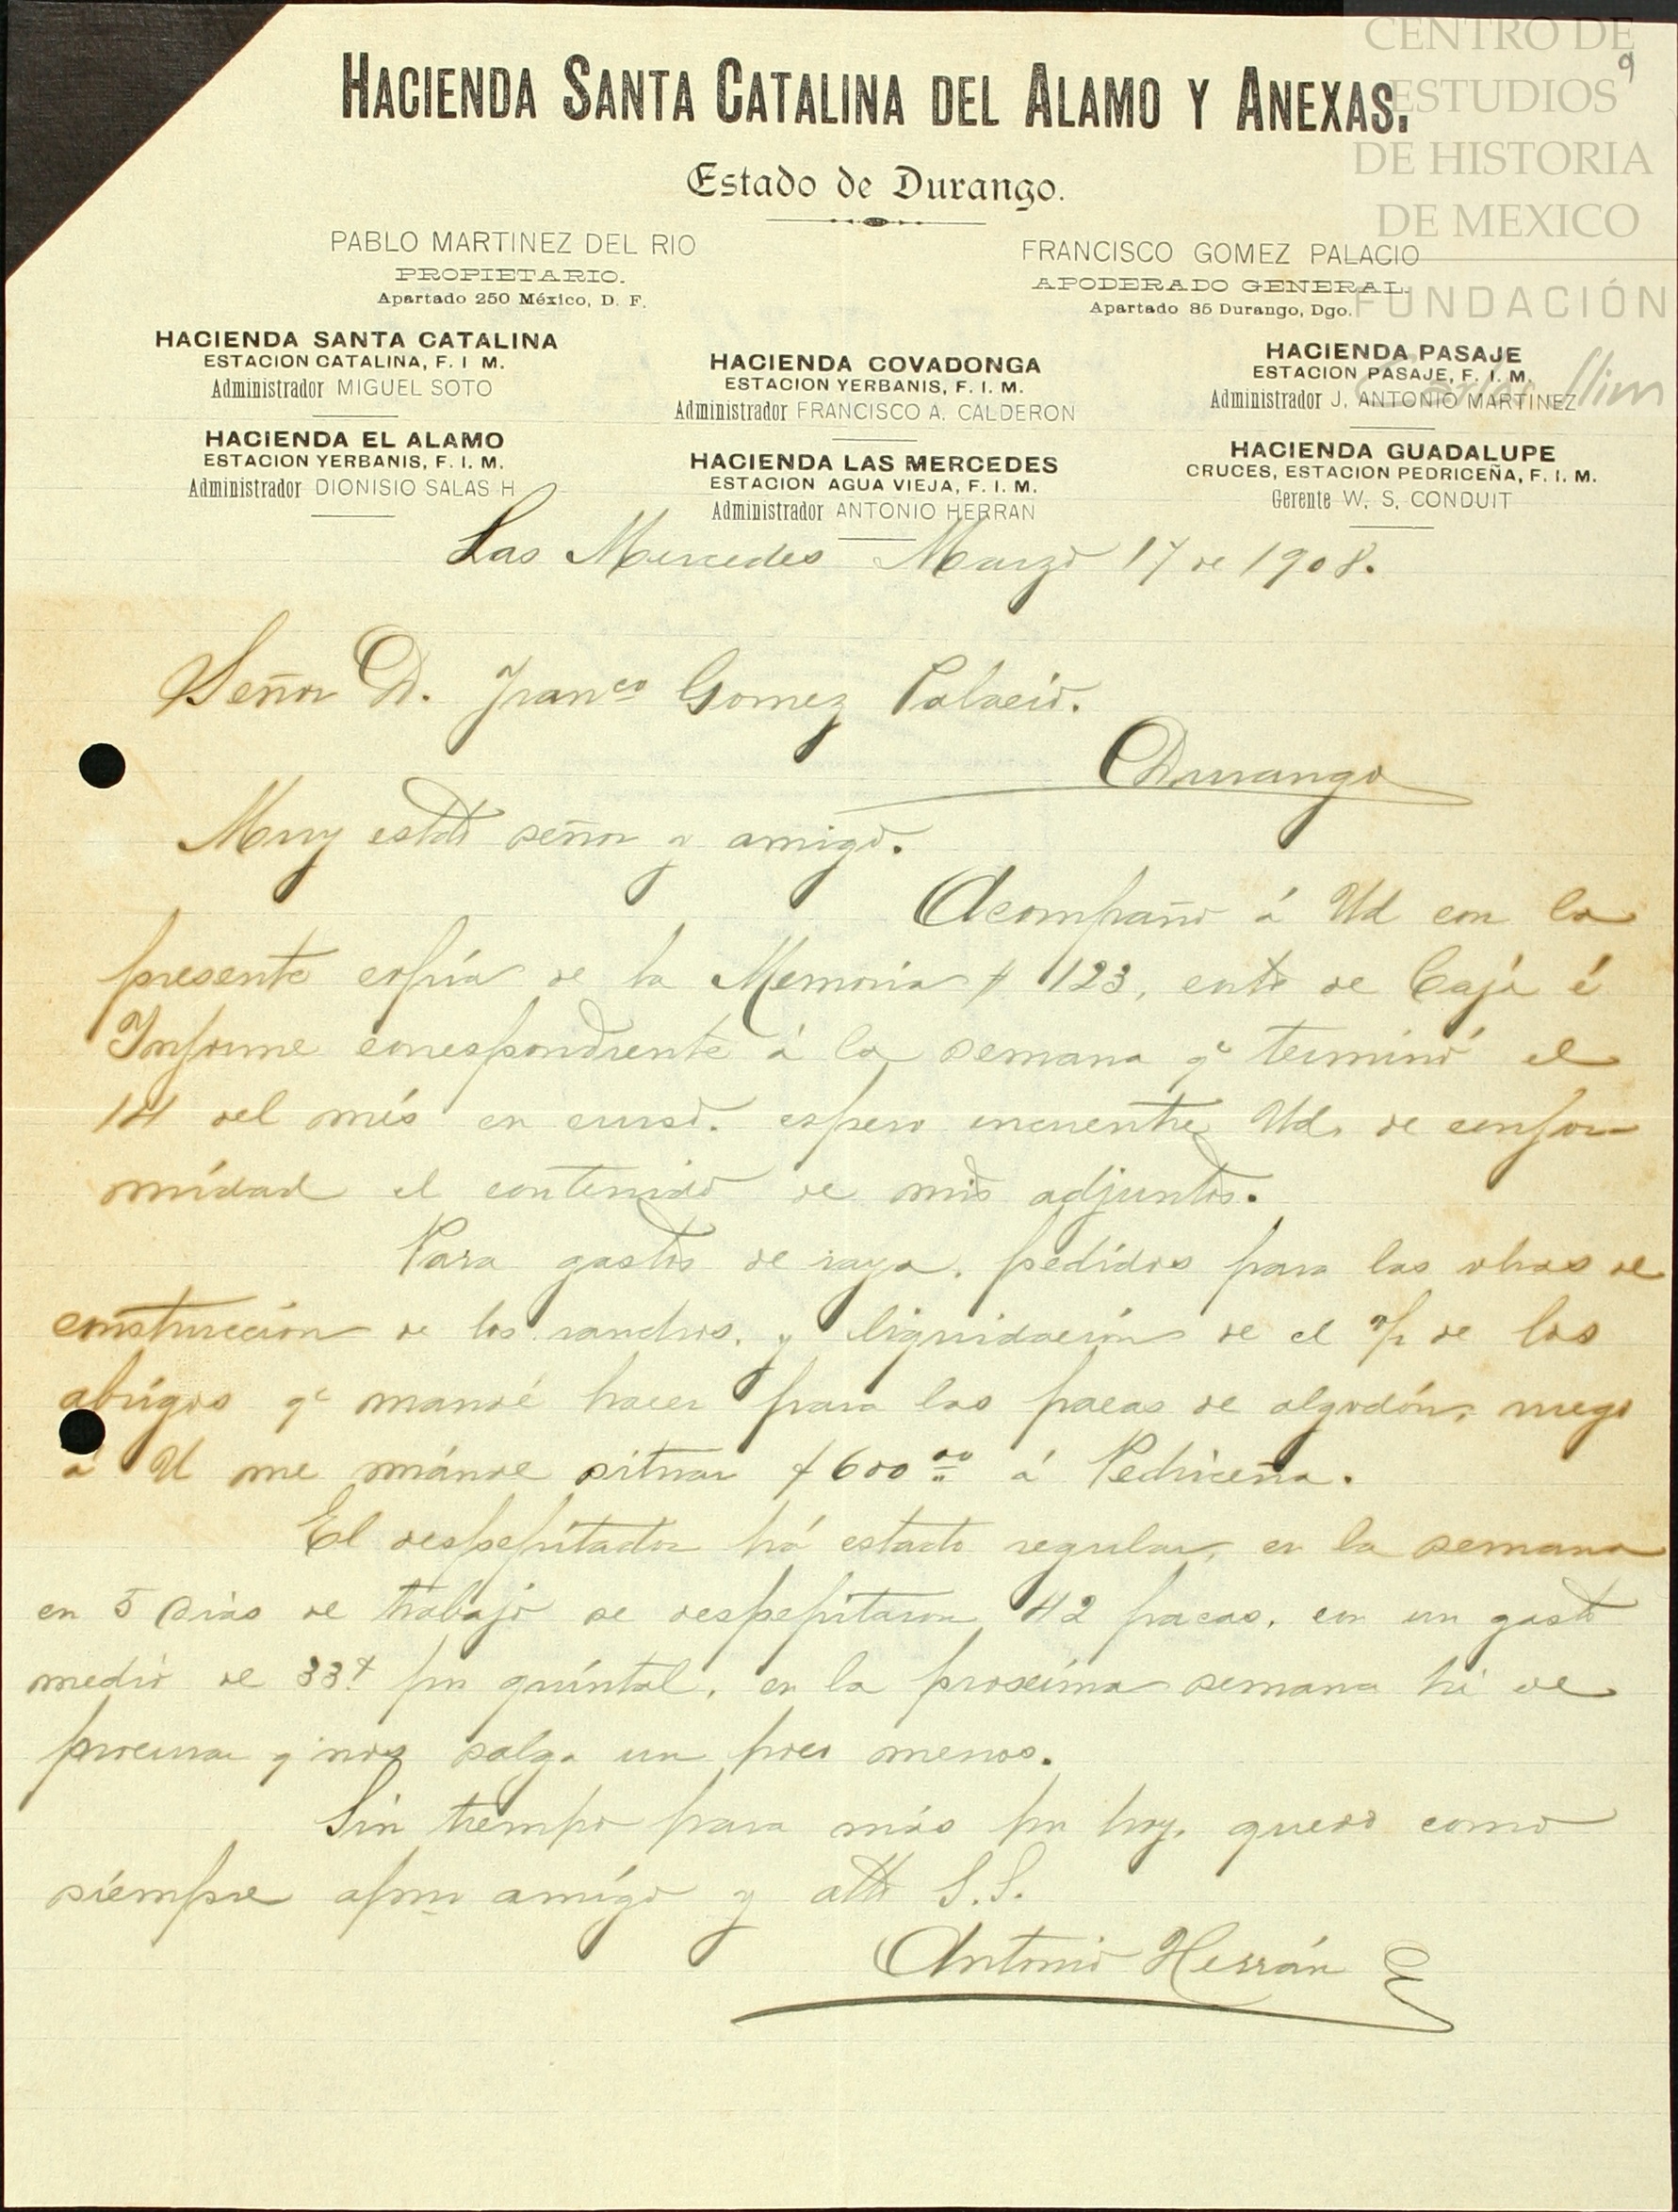 CENTRO DE
ESTUDIOS
DE HISTORIA
DE MEXICO
FUNDACIÓN
Carlos Slim
9
HACIENDA SANTA CATALINA DEL ALAMO Y ANEXAS.
Estado de Durango.
PABLO MARTINEZ DEL RIO
PROPIETARIO.
Apartado 250 México, D. F.
FRANCISCO GOMEZ PALACIO
APODERADO GENERAL.
Apartado 85 Durango, Dgo.
HACIENDA SANTA CATALINA
ESTACION CATALINA, F. I M.
Administrador MIGUEL SOTO
HACIENDA EL ALAMO
ESTACION YERBANIS, F. I. M.
Administrador DIONISIO SALAS H
HACIENDA COVADONGA
ESTACION YERBANIS, F. I. M.
Administrador FRANCISCO A. CALDERON
HACIENDA LAS MERCEDES
ESTACION AGUA VIEJA, F. I. M.
Administrador ANTONIO HERRAN
HACIENDA PASAJE
ESTACION PASAJE, F. I. M.
Administrador J. ANTONIO MARTINEZ
HACIENDA GUADALUPE
CRUCES, ESTACION PEDRICEÑA, F. I. M.
Gerente W. S. CONDUIT
Las Mercedes Marzo 17 de 1908.
Señor D. Franco Gomez Palacio.
Durango
Muy estdo señor y amigo.
Acompaño á Ud con la
presente copia de la Memoria # 123, corte de Caja é
Informe correspondiente á la semana qe terminó el
14 del més en curso. espero encuentre Ud. de confor-
midad el contenido de mis adjuntos.
Para gastos de raya, pedidos para las obras de
construccion de los ranchos, y liquidación de el de los
abrigos qe mandé hacer para las pacas de algodón, ruego
á U me mánde situar $600 00 á Pedriceña.
El despepitador há estado regular, en la semana
en 5 dias de trabajo se despepitaron 42 pacas, con un gasto
medio de 33¢ por quíntal, en la proxíma semana hé de
procurar q nos salga un poco menos.
Sin tiempo para más por hoy, quedo como
siémpre afmo amígo y atto S.S.
Antonio Herrán